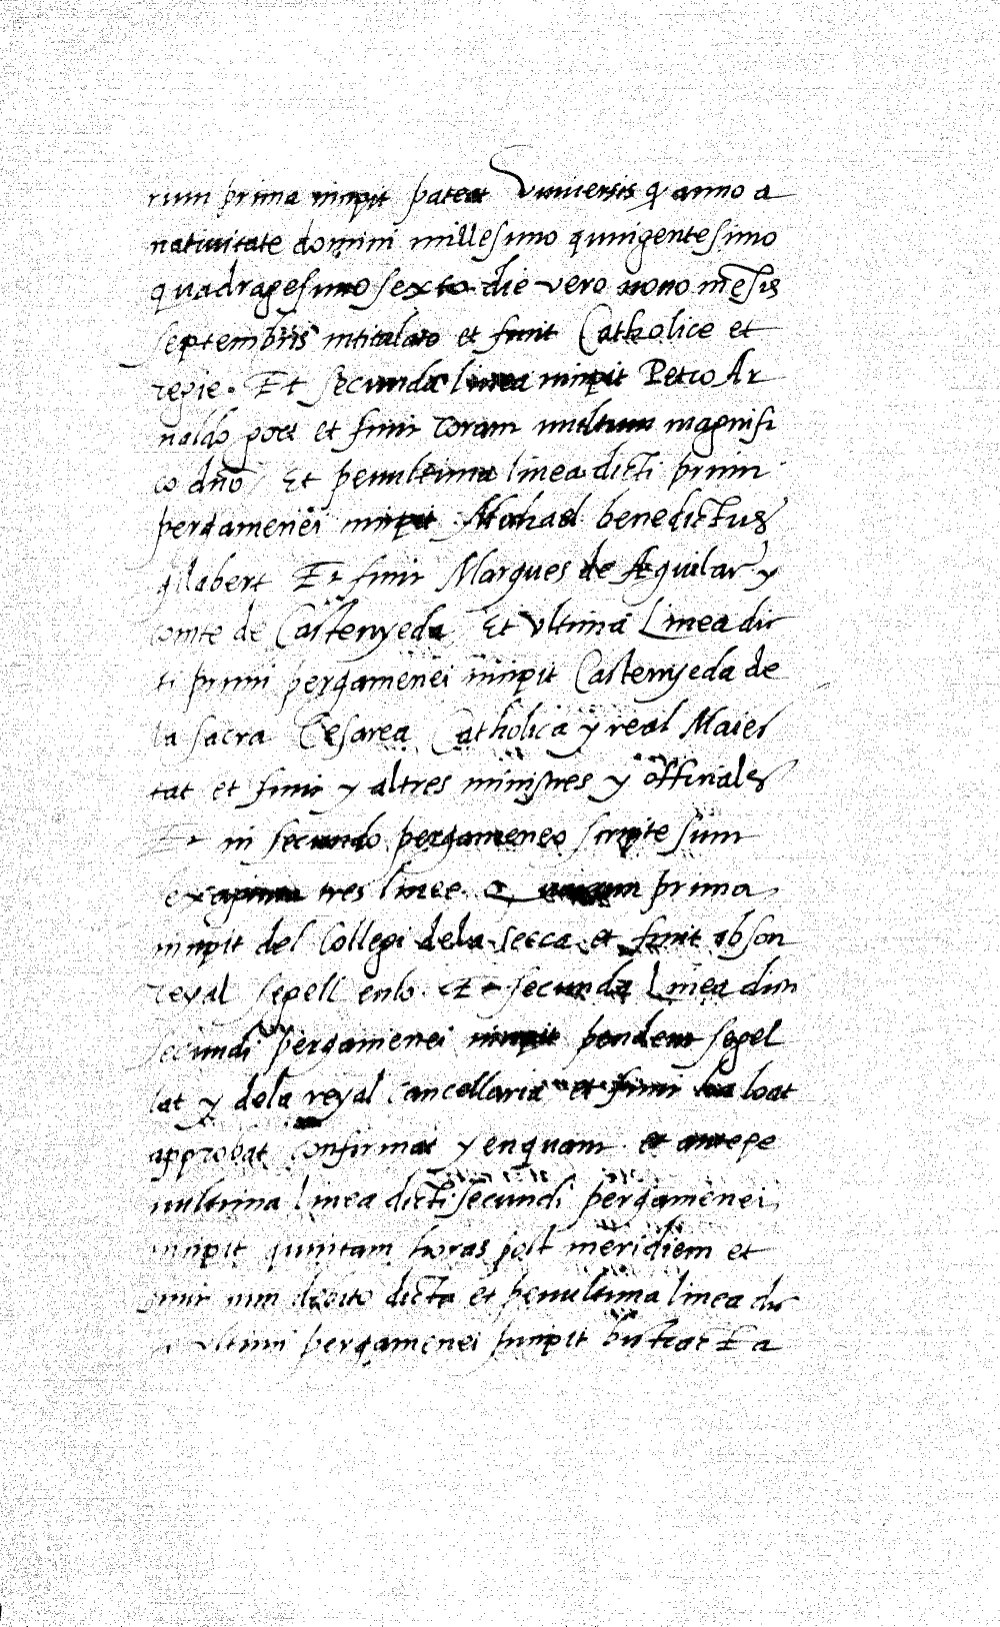 rum prima incipit pateat Universis q anno a
nativitate domini millesimo quingentesimo
quadragesimo sexto die vero nono mesis
septembris intitulato et finit Catholice et
regie. Et secunda linea incipit Petro Ar
naldo et finit coram multum magnifi
co dno Et penultima linea dicti primi
pergamenei incipit Michael benedictus
gilabert Et finit Marques de Aguilar y
comte de Castenyeda Et ultima Linea dic
ti primi pergamenei incipit Castenyeda de
la sacra Cesarea Catholica y real Maies
tat et finit y altres ministres y officiales
Et in secundo pergameneo scripte sunt
tres linee prima
incipit del Collegi dela secca et finit
reyal sepell enlo. Et secunda Linea dicti
secundi pergamenei incipit pendent segel
lat y dela reyal Cancellaria et finit loat
approbat confirmat y enquant et antepe
nultima linea dicti secundi pergamenei
incipit quintam horas post meridiem et
finit debito dicta et penultima linea dic
ti ultimi pergamenei incipit Et a